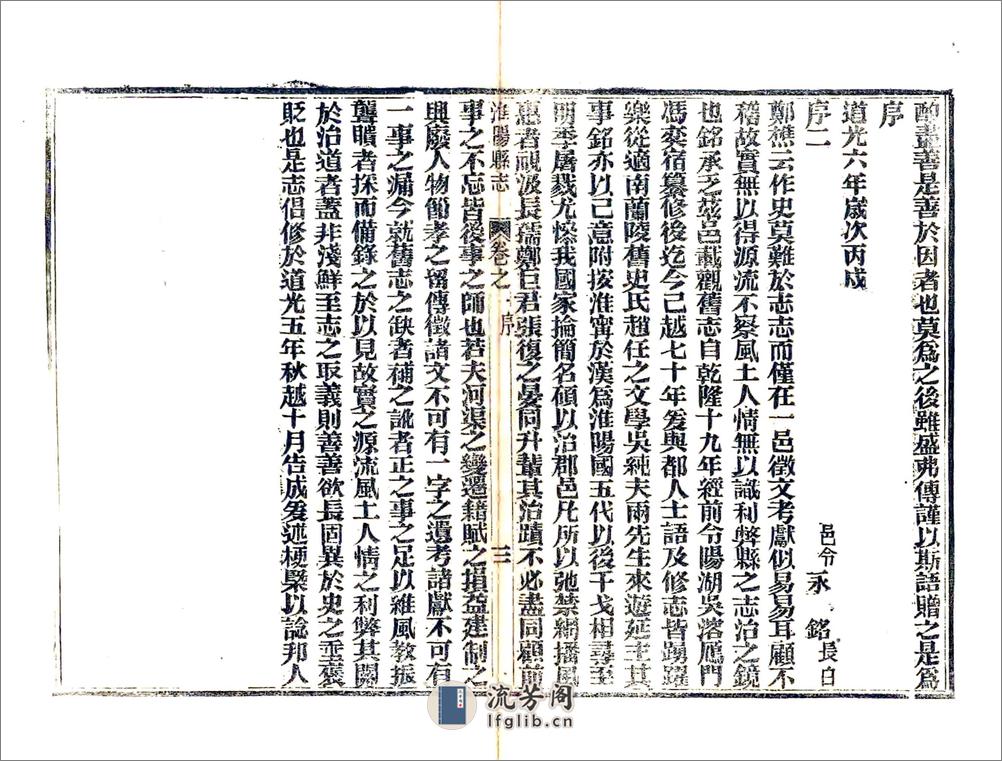 酌盡善是善於因者也莫爲之後雖盛弗傳謹以斯語贈之是爲
序
道光六年歲次丙戌
序二
邑令永銘長白
鄭樵云作史莫難於志志而僅在一邑徵文考獻似易易耳顧不
稽故實無以得源流不察風土人情無以識利弊縣之志治之鏡
也銘承乏茲邑載觀舊志自乾隆十九年經前令陽湖吳溶鴈門
馮奕宿纂修後迄今已越七十年爰與都人士語及修志皆踴躍
樂從適南蘭陵舊史氏趙任之文學吳純夫兩先生來遊延主其
事銘亦以己意附按淮甯於漢爲淮陽國五代以後干戈相尋至
明季屠戮尤慘我國家掄簡名碩以治郡邑凡所以弛禁網播風
惠者視汲長孺鄭巨君張復之晏同升輩其治蹟不必盡同顧前
淮陽縣志 卷之一序 三
事之不忘皆後事之師也若夫河渠之變遷籍賦之損益建制之
興廢人物節孝之留傳徵諸文不可有一字之遺考諸獻不可有
一事之漏今就舊志之缺者補之訛者正之事之足以維風教振
聾聵者採而備錄之於以見故實之源流風土人情之利弊其關
於治道者蓋非淺鮮至志之取義則善善欲長固異於史之垂褒
貶也是志倡修於道光五年秋越十月告成爰述梗槩以諗邦人
流芳阁
lfglib.cn